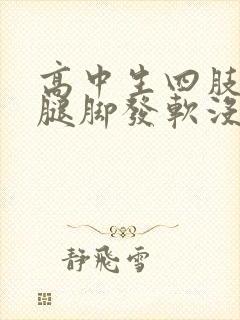 高中生四肢
腿脚發軟沒
靜飛雪